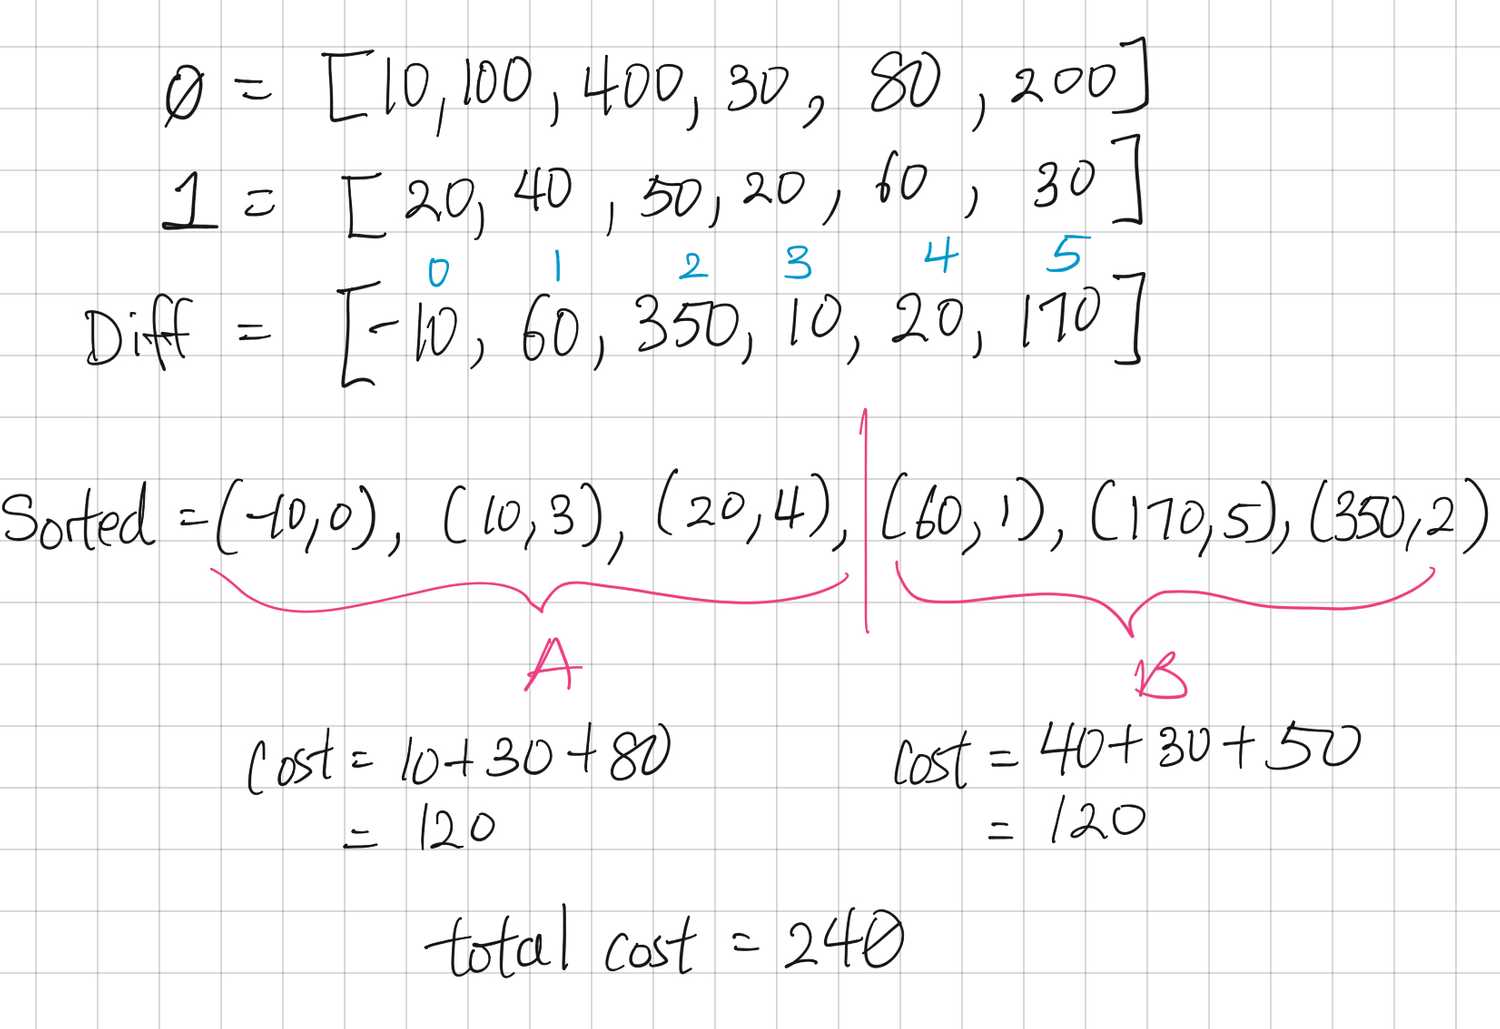 0 = [10, 100, 400, 30, 80, 200]
1 = [20, 40, 50, 20, 60, 30]
0 1 2 3 4 5
Diff = [-10, 60, 350, 10, 20, 170]
Sorted = (-10,0), (10,3), (20,4), (60,1), (170,5), (350,2)
A B
Cost = 10+30+80 Cost = 40+30+50
= 120 = 120
total cost = 240